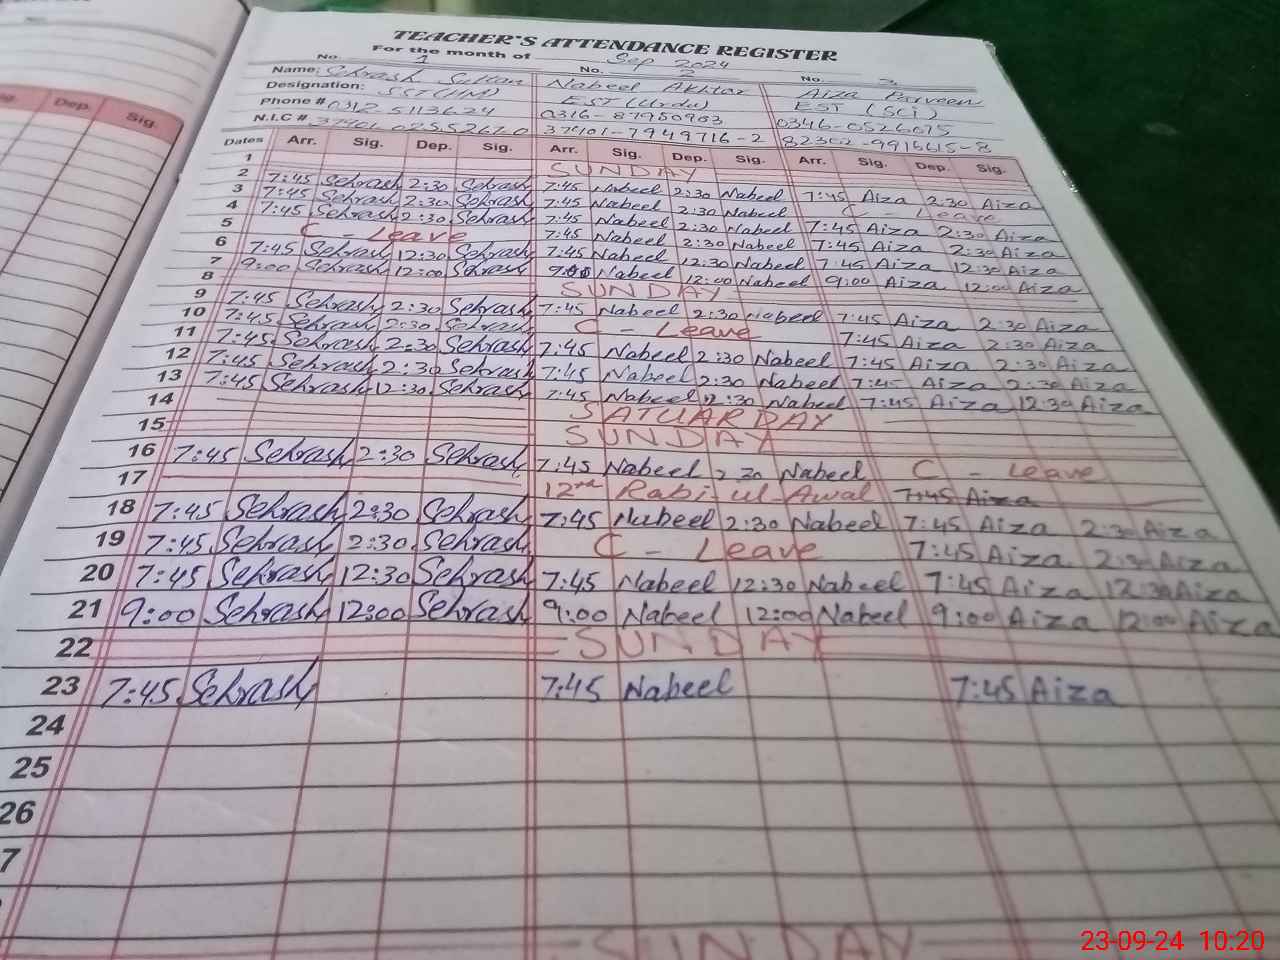 TEACHER'S ATTENDANCE REGISTER
For the month of Sep 2024
No. 1 No. 2 No. 3
Name: Sehrash Sultan Nabeel Akhtar Aiza Parveen
Designation: SST (IM) EST (Urdu) EST (Sci)
Phone # 0312 5113624 0316-87950963 0346-0526075
N.I.C # 37101-7949716-2
Dates Arr. Sig. Dep. Sig. Arr. Sig. Dep. Sig. Arr. Sig. Dep. Sig.
Dep. Sig.
1 SUNDAY
2 7:45 Sehrash 2:30 Sehrash 7:45 Nabeel 2:30 Nabeel 7:45 Aiza 2:30 Aiza
3 7:45 Sehrash 2:30 Sehrash 7:45 Nabeel 2:30 Nabeel C - Leave
4 7:45 Sehrash 2:30 Sehrash 7:45 Nabeel 2:30 Nabeel 7:45 Aiza 2:30 Aiza
5 C - Leave 7:45 Nabeel 2:30 Nabeel 7:45 Aiza 2:30 Aiza
6 7:45 Sehrash 12:30 Sehrash 7:45 Nabeel 12:30 Nabeel 7:45 Aiza 12:30 Aiza
7 9:00 Sehrash 12:00 Sehrash 9:00 Nabeel 12:00 Nabeel 9:00 Aiza 12:00 Aiza
8 SUNDAY
9 7:45 Sehrash 2:30 Sehrash 7:45 Nabeel 2:30 Nabeel 7:45 Aiza 2:30 Aiza
10 7:45 Sehrash 2:30 Sehrash C - Leave 7:45 Aiza 2:30 Aiza
11 7:45 Sehrash 2:30 Sehrash 7:45 Nabeel 2:30 Nabeel 7:45 Aiza 2:30 Aiza
12 7:45 Sehrash 2:30 Sehrash 7:45 Nabeel 2:30 Nabeel 7:45 Aiza 2:30 Aiza
13 7:45 Sehrash 12:30 Sehrash 7:45 Nabeel 12:30 Nabeel 7:45 Aiza 12:30 Aiza
14 SATUARDAY
15 SUNDAY
16 7:45 Sehrash 2:30 Sehrash 7:45 Nabeel 2:30 Nabeel C - Leave
17 12 Rabi ul Awal 7:45 Aiza
18 7:45 Sehrash 2:30 Sehrash 7:45 Nabeel 2:30 Nabeel 7:45 Aiza 2:30 Aiza
19 7:45 Sehrash 2:30 Sehrash C - Leave 7:45 Aiza 2:30 Aiza
20 7:45 Sehrash 12:30 Sehrash 7:45 Nabeel 12:30 Nabeel 7:45 Aiza 12:30 Aiza
21 9:00 Sehrash 12:00 Sehrash 9:00 Nabeel 12:00 Nabeel 9:00 Aiza 12:00 Aiza
22 SUNDAY
23 7:45 Sehrash 7:45 Nabeel 7:45 Aiza
24
25
26
7
SUNDAY
23-09-24 10:20